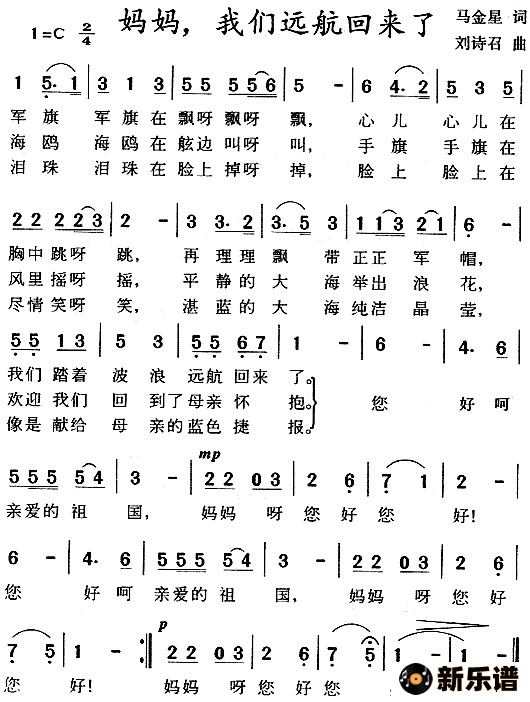 妈妈，我们远航回来了
马金星 词
刘诗召 曲
1=C 2/4
1 5· 1 | 3 1 3 | 5 5 5 5 6 | 5 - | 6 4· 2 | 5 3 5 |
军 旗 军 旗 在 飘呀 飘呀 飘， 心 儿 心 儿 在
海 鸥 海 鸥 在 舷边 叫呀 叫， 手 旗 手 旗 在
泪 珠 泪 珠 在 脸上 掉呀 掉， 脸 上 脸 上 在
2 2 2 2 3 | 2 - | 3 3· 2 | 3· 5 | 1 1 3 2 1 | 6 - |
胸中 跳呀 跳， 再 理理 飘 带 正正 军 帽，
风里 摇呀 摇， 平 静的 大 海 举出 浪 花，
尽情 笑呀 笑， 湛 蓝的 大 海 纯洁 晶 莹，
5 5 1 3 | 5 3 | 5 5 6 7 | 1 - | 6 - | 4· 6 |
我们 踏着 波 浪 远航 回来 了。
欢迎 我们 回 到了 母亲 怀 抱。 您 好呵
像是 献给 母 亲的 蓝色 捷 报。
mp
5 5 5 5 4 | 3 - | 2 2 0 3 | 2 6 | 7 1 | 2 - |
亲爱的 祖 国， 妈妈 呀 您 好 您 好!
6 - | 4· 6 | 5 5 5 5 4 | 3 - | 2 2 0 3 | 2 6 |
您 好 呵 亲爱的 祖 国， 妈妈 呀 您 好
p
7 5 | 1 - :| 2 2 0 3 | 2 6 | 7 5 | 1 - | 1
您 好! 妈妈 呀 您 好 您
新乐谱